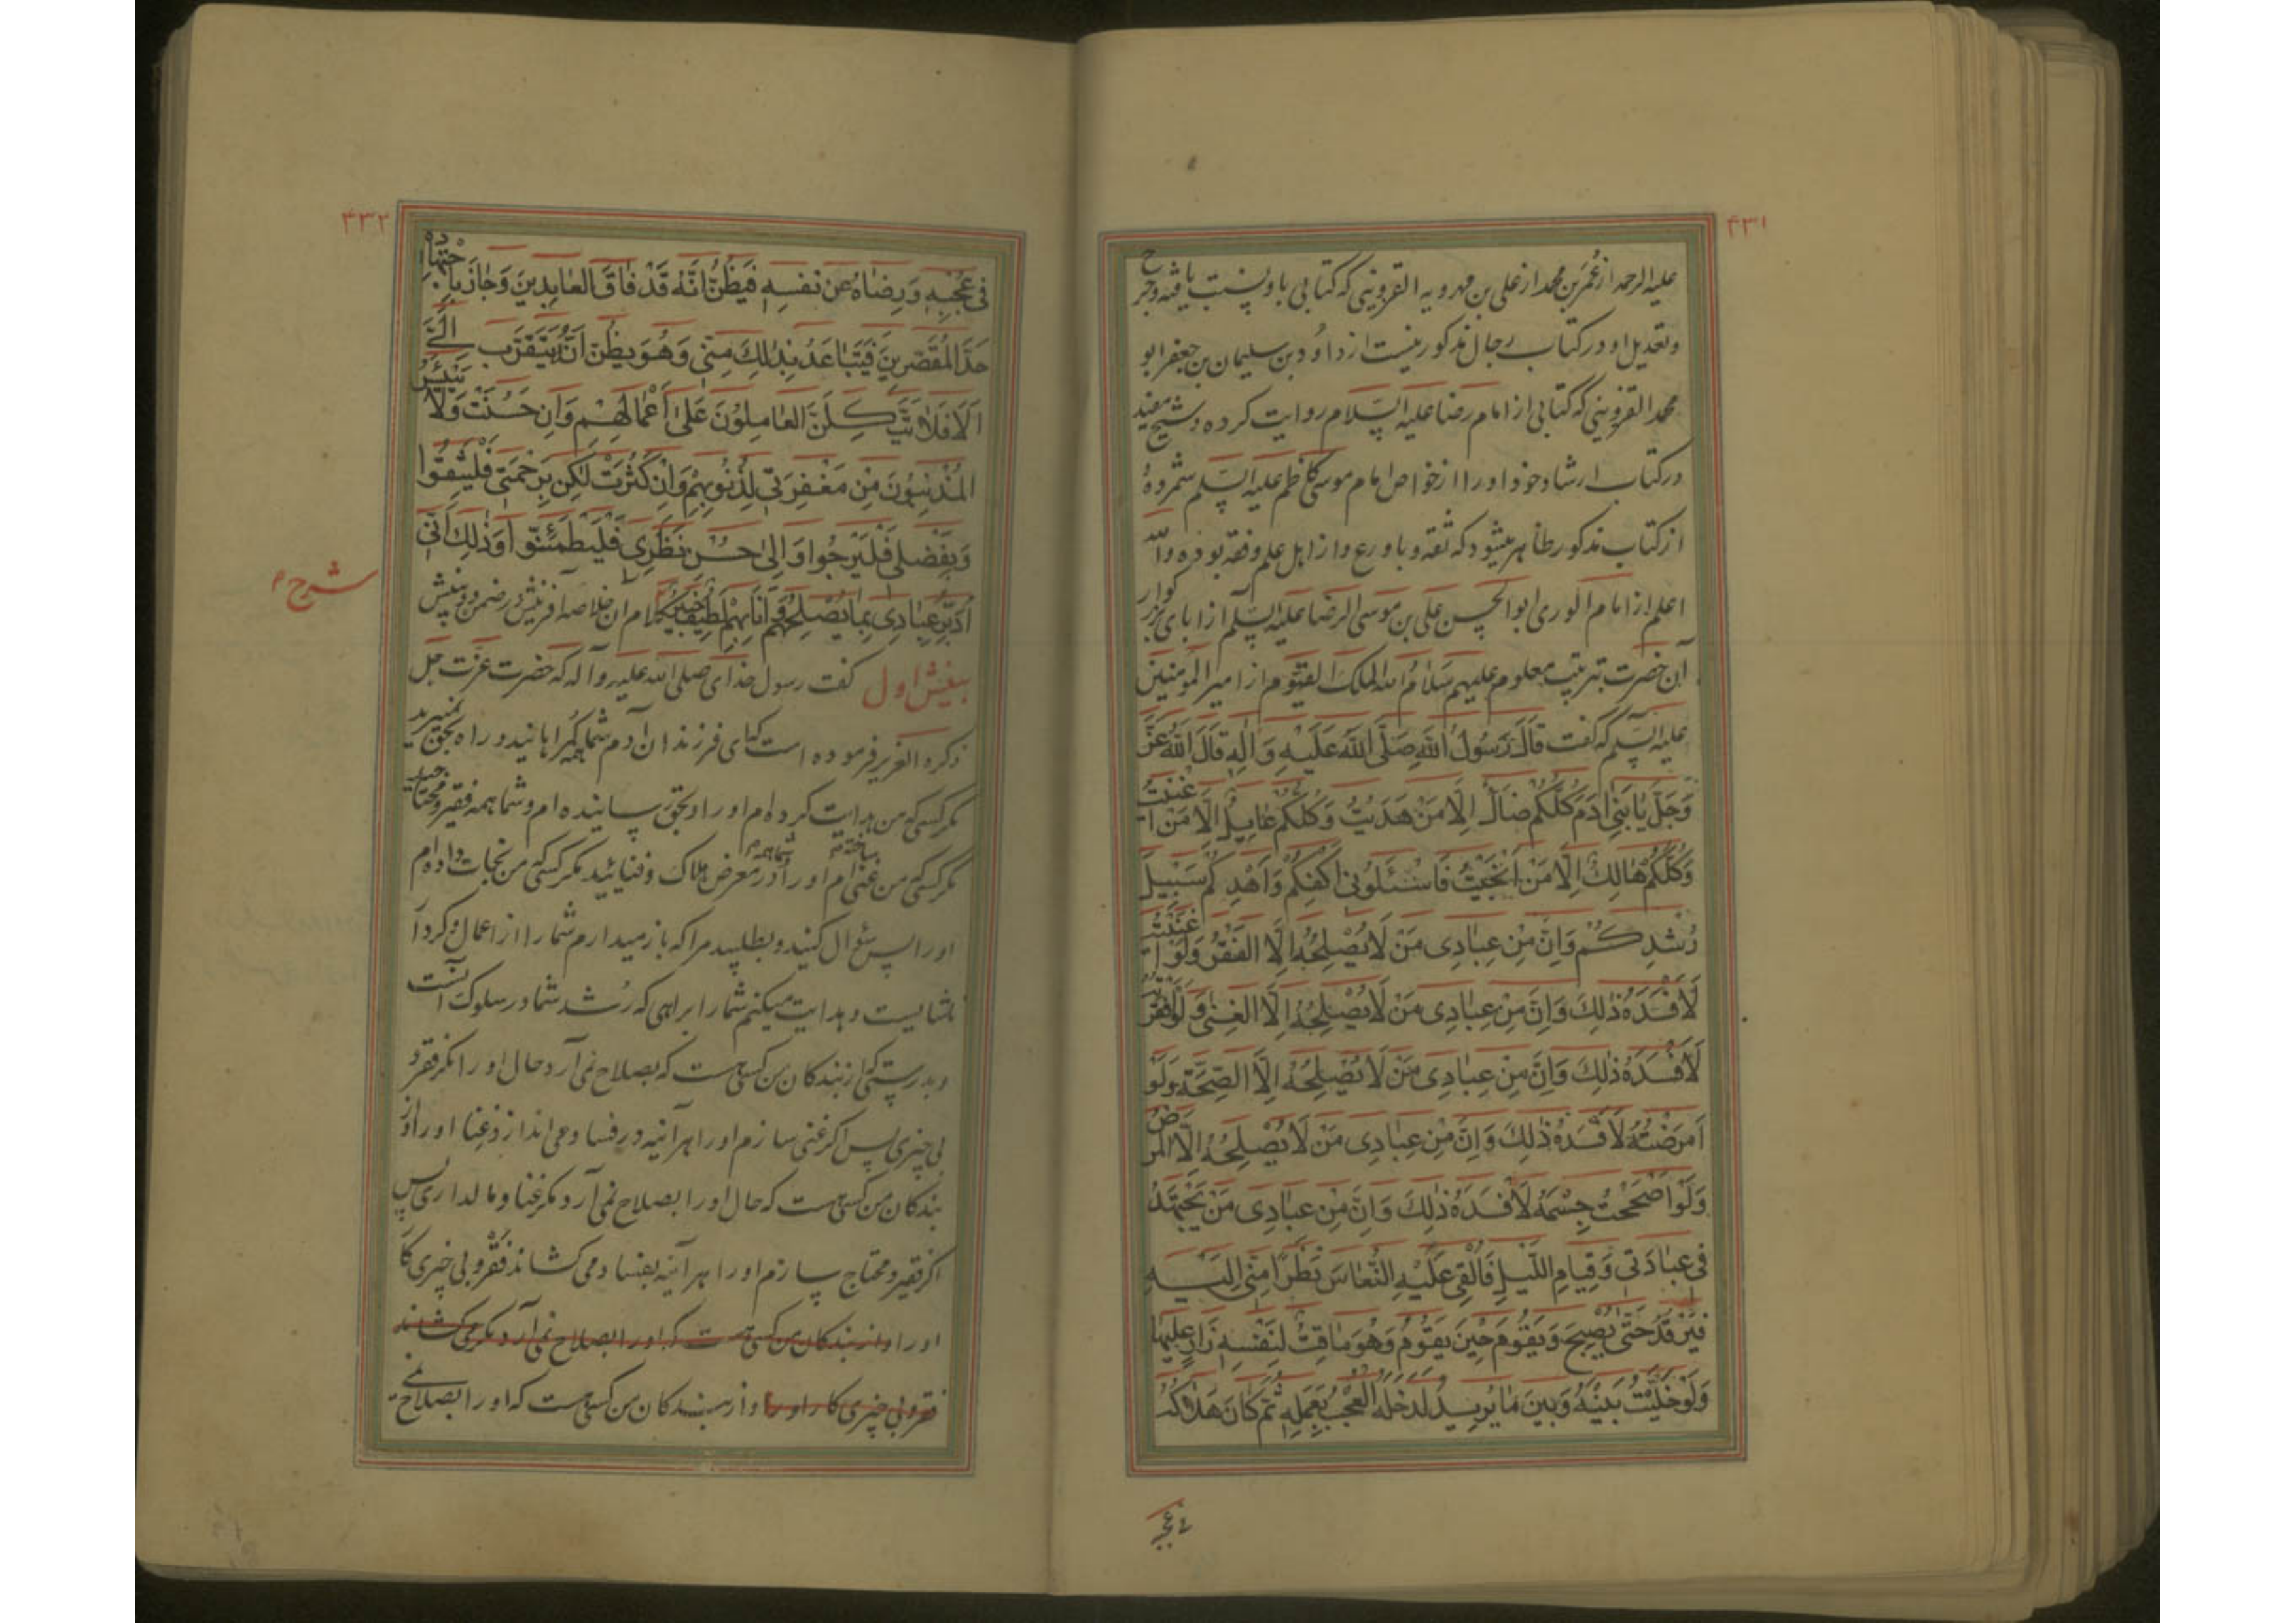 ۴۳۱
علیه الرحمه از عمر بن محمد از علی بن مهرویه القزوینی که کتابی باو نسبت یافته و جرح
و تعدیل او در کتاب رجال مذکور نیست از داود بن سلیمان بن جعفر ابو
محمد القزوینی که کتابی از امام رضا علیه السلام روایت کرده و شیخ مفید
در کتاب ارشاد خود او را از خواص امام موسی کاظم علیه السلم شمرده
از کتاب مذکور ظاهر میشود که ثقه و با ورع و از اهل علم و فقه بوده والله
اعلم از امام الوری ابو الحسن علی بن موسی الرضا علیه السلم از آبای بزرکوار
آن حضرت بترتیب معلوم علیهم سلام الله الملک القیوم از امیر المؤمنین
علیه السلم که گفت قَالَ رَسُولُ اللهِ صَلَّى اللهُ عَلَيْهِ وَالِهِ قَالَ اللهُ عَزَّ
وَجَلَّ يَا بَنِي ادَمَ كُلُّكُمْ ضَالٌّ اِلَّا مَنْ هَدَيْتُ وَكُلُّكُمْ عَايِلٌ اِلَّا مَنْ اَغْنَيْتُ
وَكُلُّكُمْ هَالِكٌ اِلَّا مَنْ اَنْجَيْتُ فَاسْئَلُونِي اَكْفِكُمْ وَاَهْدِكُمْ سَبِيلَ
رُشْدِكُمْ وَاِنَّ مِنْ عِبَادِى مَنْ لَا يُصْلِحُهُ اِلَّا الْفَقْرُ وَلَوْ اَغْنَيْتُهُ
لَاَفْسَدَهُ ذٰلِكَ وَاِنَّ مِنْ عِبَادِى مَنْ لَا يُصْلِحُهُ اِلَّا الْغِنٰى وَلَوْ اَفْقَرْتُهُ
لَاَفْسَدَهُ ذٰلِكَ وَاِنَّ مِنْ عِبَادِى مَنْ لَا يُصْلِحُهُ اِلَّا الصِّحَّةُ وَلَوْ
اَمْرَضْتُهُ لَاَفْسَدَهُ ذٰلِكَ وَاِنَّ مِنْ عِبَادِى مَنْ لَا يُصْلِحُهُ اِلَّا الْمَرَضُ
وَلَوْ اَصْحَحْتُ جِسْمَهُ لَاَفْسَدَهُ ذٰلِكَ وَاِنَّ مِنْ عِبَادِى مَنْ يَجْتَهِدُ
فِى عِبَادَتِى وَقِيَامِ اللَّيْلِ فَاُلْقِى عَلَيْهِ النُّعَاسَ نَظَرًا مِنِّى اِلَيْهِ
فَيَرْقُدُ حَتّٰى يُصْبِحَ وَيَقُومُ حِينَ يَقُومُ وَهُوَ مَاقِتٌ لِنَفْسِهِ زَارٍ عَلَيْهَا
وَلَوْ خَلَّيْتُ بَيْنَهُ وَبَيْنَ مَا يُرِيدُ لَدَخَلَهُ الْعُجْبُ بِعَمَلِهِ ثُمَّ كَانَ هَلَاكُهُ
فی عجبه
۴۳۲
فِى عُجْبِهِ وَرِضَاهُ عَنْ نَفْسِهِ فَيَظُنُّ اَنَّهُ قَدْ فَاقَ الْعَابِدِينَ وَجَازَ بِاجْتِهَادِهِ
حَدَّ الْمُقَصِّرِينَ فَيَتَبَاعَدُ بِذٰلِكَ مِنِّى وَهُوَ يَظُنُّ اَنَّهُ يَتَقَرَّبُ اِلَىَّ
اَلَا فَلَا يَتَّكِلَنَّ الْعَامِلُونَ عَلٰى اَعْمَالِهِمْ وَاِنْ حَسُنَتْ وَلَا يَيْئَسِ
الْمُذْنِبُونَ مِنْ مَغْفِرَتِى لِذُنُوبِهِمْ وَاِنْ كَثُرَتْ لٰكِنْ بِرَحْمَتِى فَلْيَثِقُوا
وَبِفَضْلِى فَلْيَرْجُوا وَاِلٰى حُسْنِ نَظَرِى فَلْيَطْمَئِنُّوا وَذٰلِكَ اَنِّى
اُدَبِّرُ عِبَادِى بِمَا يُصْلِحُهُمْ وَاَنَا بِهِمْ لَطِيفٌ خَبِيرٌ کلام ان خلاصه آفرینش در ضمن دو بینش
شرح م
بینش اول گفت رسول خدای صلی الله علیه و آله که حضرت عزت جل
ذکره العزیز فرموده است که ای فرزندان آدم شما همه گمراهانید و راه بحق نمیبرید
مکر کسی که من هدایت کرده ام او را و بحق رسانیده ام و شما همه فقیر و محتاجید
مکر کسی که من غنی ساخته ام او را و شما همه در معرض هلاک و فنایید مکر کسی که من نجات داده ام
او را پس سؤال کنید و بطلبید مرا که باز میدارم شما را از اعمال و کردار
ناشایست و هدایت میکنم شما را براهی که رشد شما در سلوک آنست
و بدرستی که از بندکان من کسی هست که بصلاح نمی آرد حال او را مکر فقر و
بی چیزی پس اکر غنی سازم او را هر آینه در فساد می اندازد غنا او را و از
بندکان من کسی هست که حال او را بصلاح نمی آرد مکر غنا و مالداری پس
اکر فقیر و محتاج سازم او را هر آینه بفساد می کشاند فقر و بی چیزی کار
او را و از بندکان من کسی هست که او را بصلاح نمی آرد مکر می کشاند
فقر و بی چیزی کار او را و از بندکان من کسی هست که او را بصلاح نمی